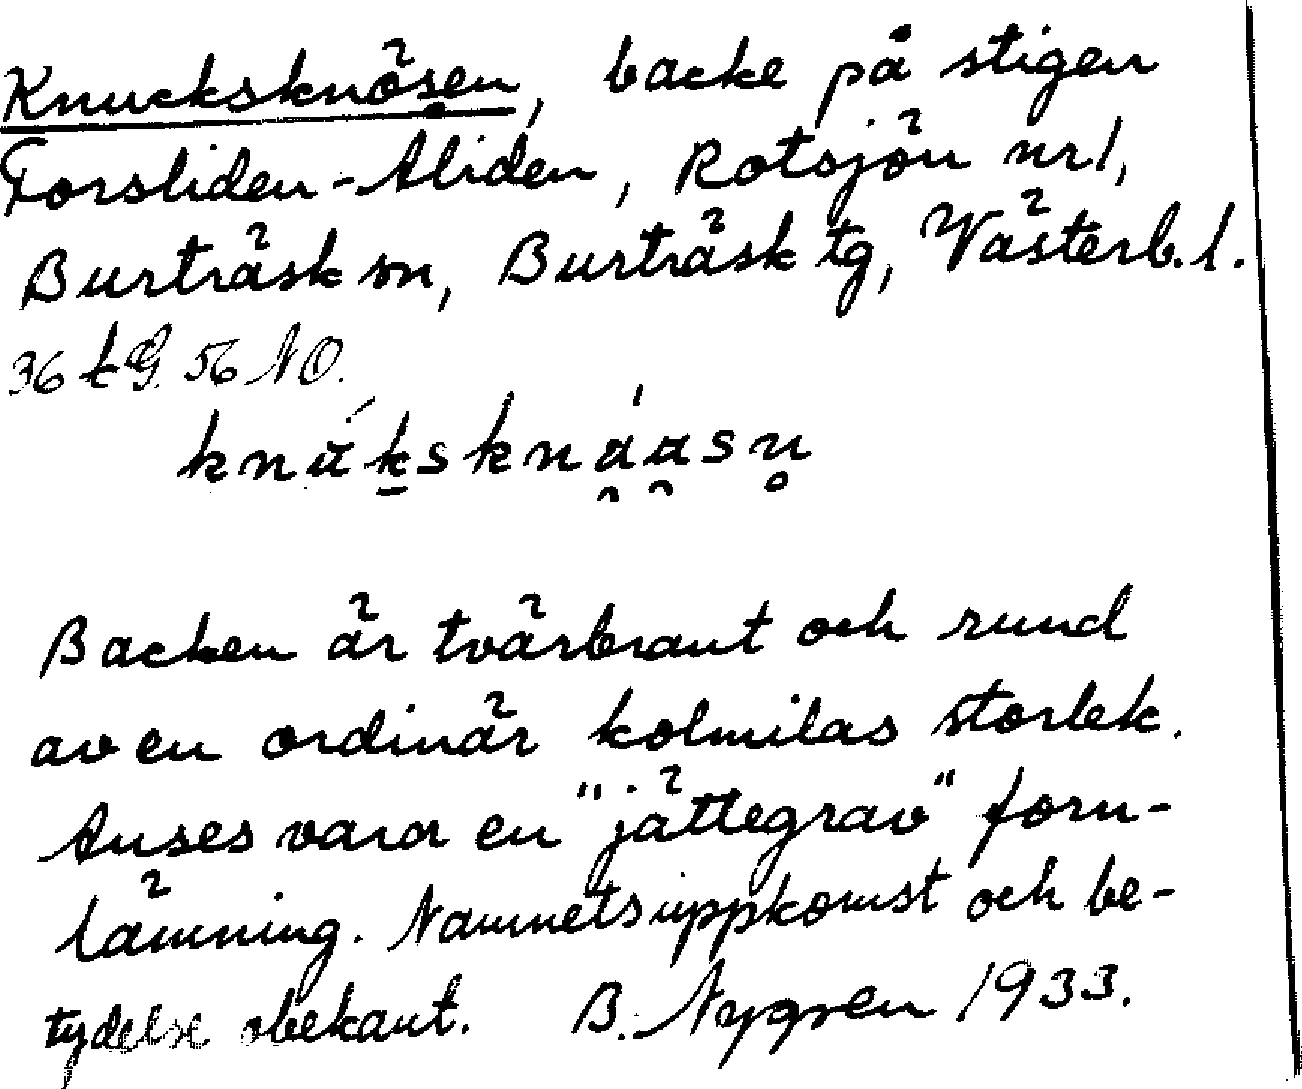 Knucksknösen, backe på stigen
Forsliden-Åliden, Rotsjön nr 1,
Burträsk sn, Burträsk tg, Västerb. l.
36 k G. 56 NO.
knŭ́k̠sknɑ̯́ɑ̯sn̥
Backen är tvärbrant och rund
av en ordinär kolmilas storlek.
Anses vara en "jättegrav" forn-
lämning. Namnets uppkomst och be-
tydelse obekant. B. Nygren 1933.